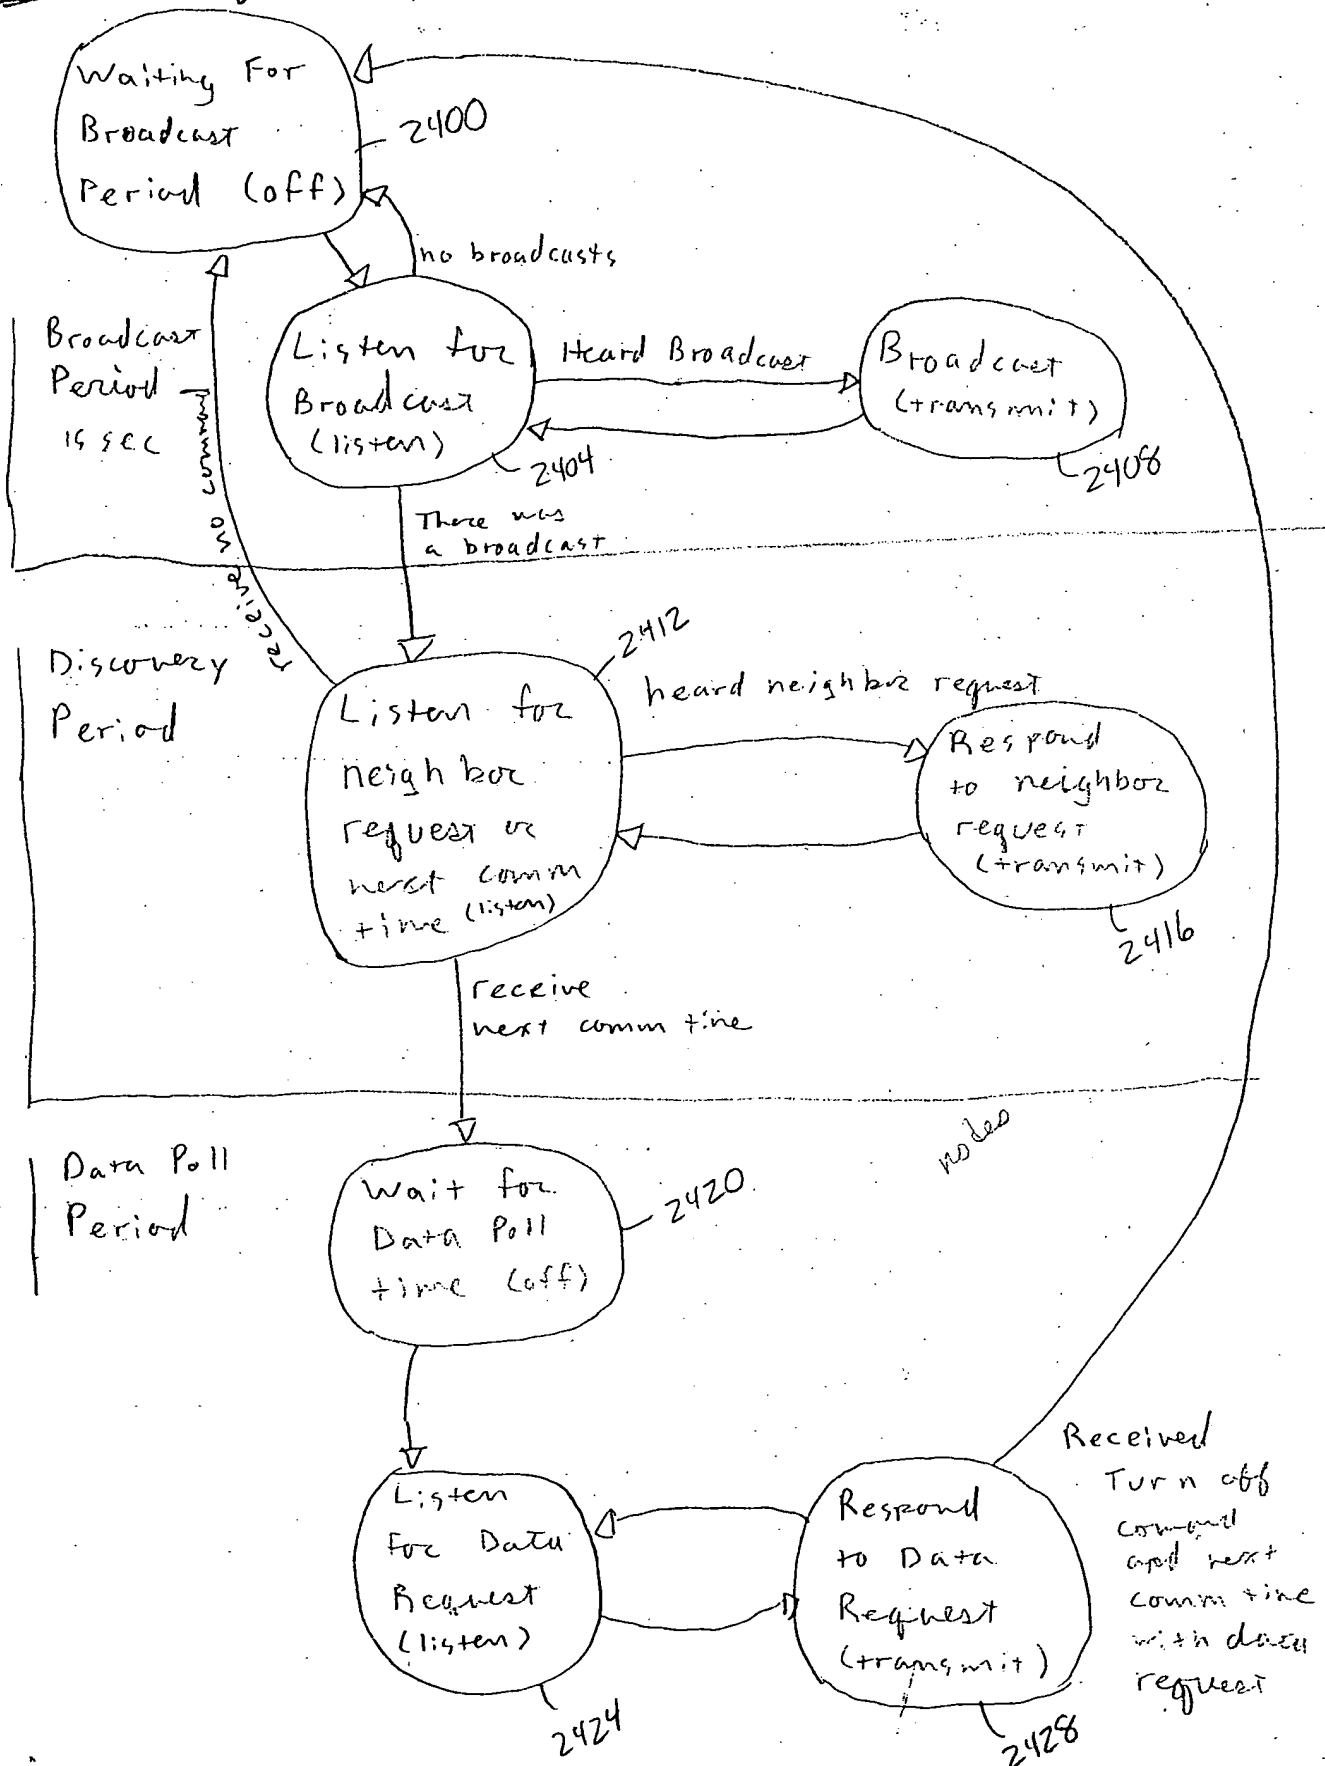 Waiting For
Broadcast
Period (off)
2400
no broadcasts
Broadcast
Period
15 sec
Listen for
Broadcast
(listen)
2404
Heard Broadcast
Broadcast
(transmit)
2408
There was
a broadcast
receive no command
Discovery
Period
2412
Listen for
neighbor
request or
next comm
time (listen)
heard neighbor request
Respond
to neighbor
request
(transmit)
2416
receive
next comm time
nodes
Data Poll
Period
Wait for
Data Poll
time (off)
2420
Listen
For Data
Request
(listen)
2424
Respond
to Data
Request
(transmit)
2428
Received
Turn off
comand
and next
comm time
with data
request